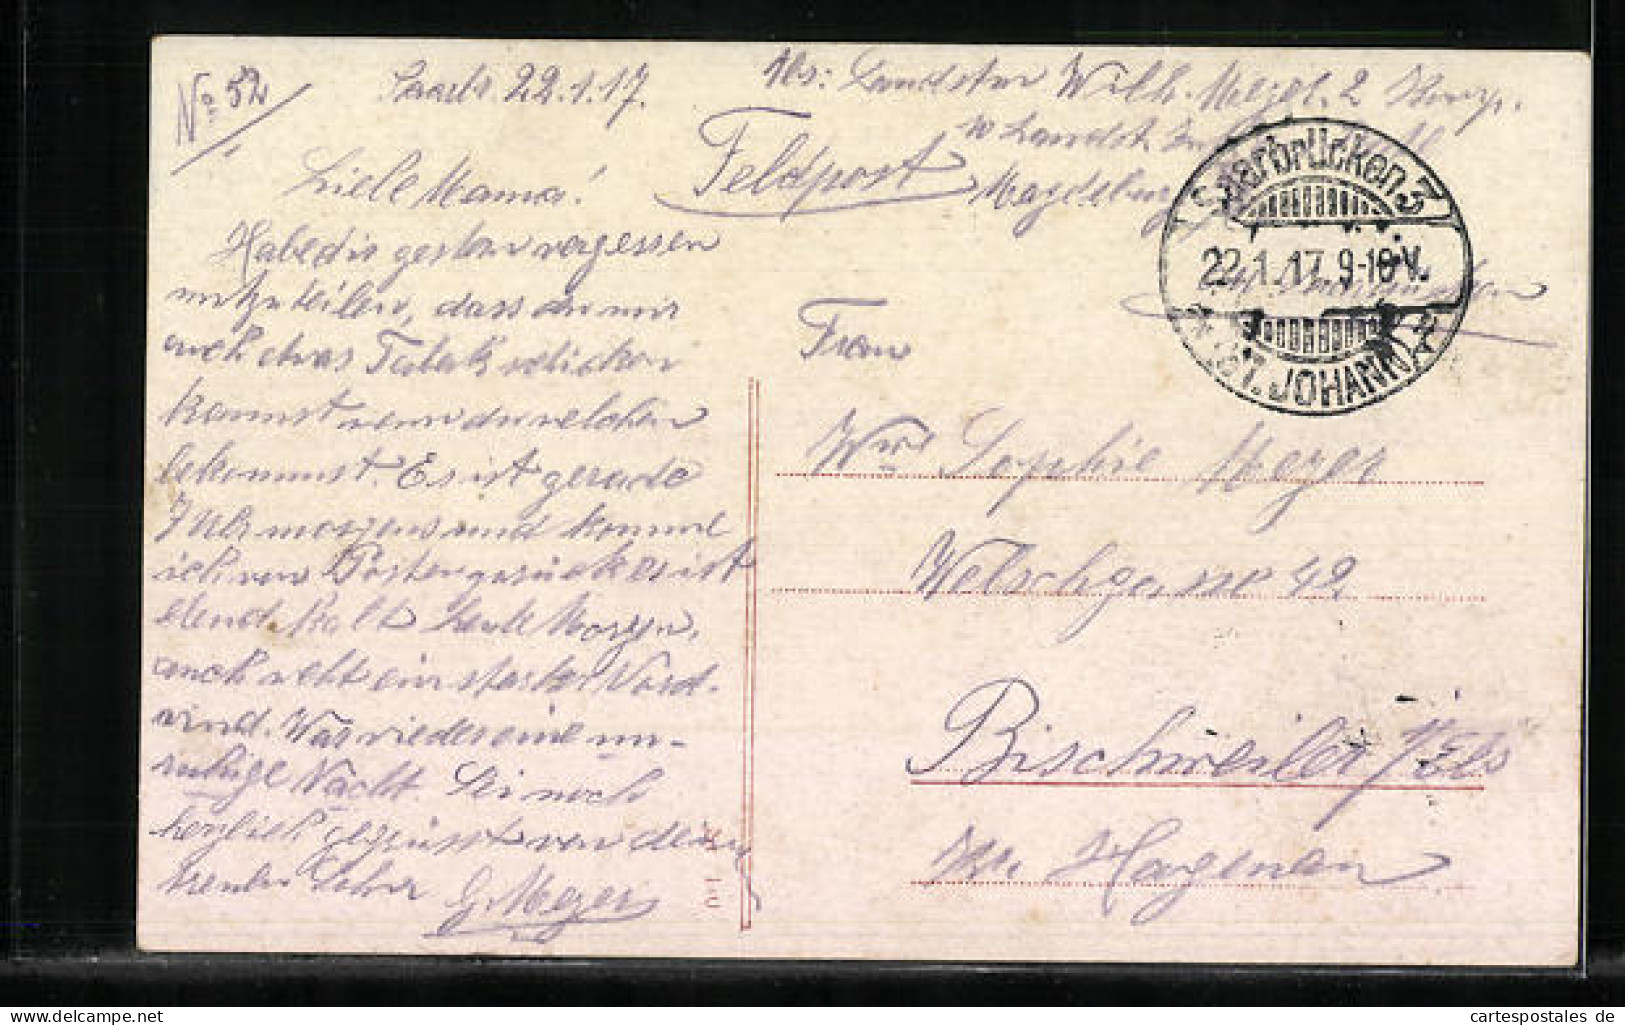 No 52
Saarbr. 22.1.17.
Abs: Landstm Wilh. Meyer. 2 Komp.
Landst. Inf
Magdeburg
Feldpost
Saarbrücken 3
22.1.17. 9-10 V.
* (ST. JOHANN) *
Liebe Mama!
Habe dir gestern vergessen
mitzuteilen, dass du mir
auch etwas Tabak schicken
kannst wenn du welchen
bekommst. Es ist gerade
7 Uhr morgens und komme
ich von Posten zurück es ist
elend kalt heute Morgen,
auch weht ein starker Nord-
wind. War wieder eine un-
ruhige Nacht. Sei noch
herzlich gegrüsst von deinem
treuen Sohn G. Meyer
Frau
Wwe Sophie Meyer
Welschgasse 42
Bischweiler i/Els
Kr. Hagenau
cartespostales_de